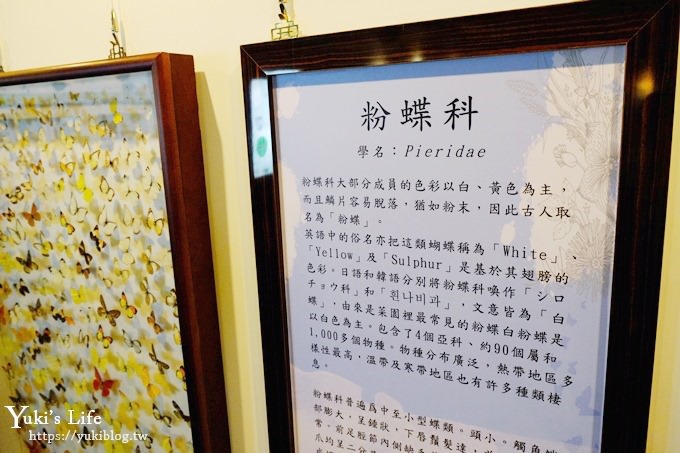 粉蝶科
學名：Pieridae
粉蝶科大部分成員的色彩以白、黃色為主，
而且鱗片容易脫落，猶如粉末，因此古人取
名為「粉蝶」。
英語中的俗名亦把這類蝴蝶稱為「White」、
「Yellow」及「Sulphur」是基於其翅膀的
色彩。日語和韓語分別將粉蝶科喚作「シロ
チョウ科」和「흰나비과」，文意皆為「白
蝶」，由來是菜園裡最常見的粉蝶白粉蝶是
以白色為主。包含了4個亞科、約90個屬和
1,000多個物種。物種分布廣泛，熱帶地區多
樣性最高，溫帶及寒帶地區也有許多種類棲
息。
粉蝶科普遍為中至小型蝶類。頭小。觸角端
部膨大，呈錘狀，下唇鬚發達，
常。前足脛節內側缺
爪均呈二分
Yuki's Life
https://yukiblog.tw